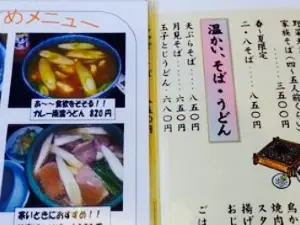 めメニュー
あ〜〜食欲をそそる！！
カレー南蛮うどん 820円
寒いときにおすすめ！！
家族そば（四〜五人前）
三五〇〇円
春〜夏限定
二・八そば 八五〇円
温かい、そば・うどん
天ぷらそば 八五〇円
月見そば 六五〇円
玉子とじうどん 六八〇円
鳥か
焼肉
スタ
揚げ
おじ
ごは